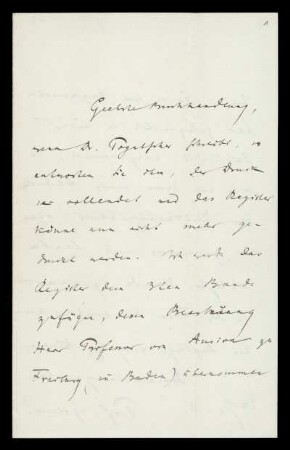 Geehrte Buchhandlung,
wenn Dr. schreibt, so
antworten Sie ihm, der Druck
sei vollendet und das Register
könne nun nicht mehr ge-
druckt werden. Ich werde das
Register dem 3ten Bande
zufügen, dessen Bearbeitung
Herr Professor von zu
Freiburg (in Baden) übernommen